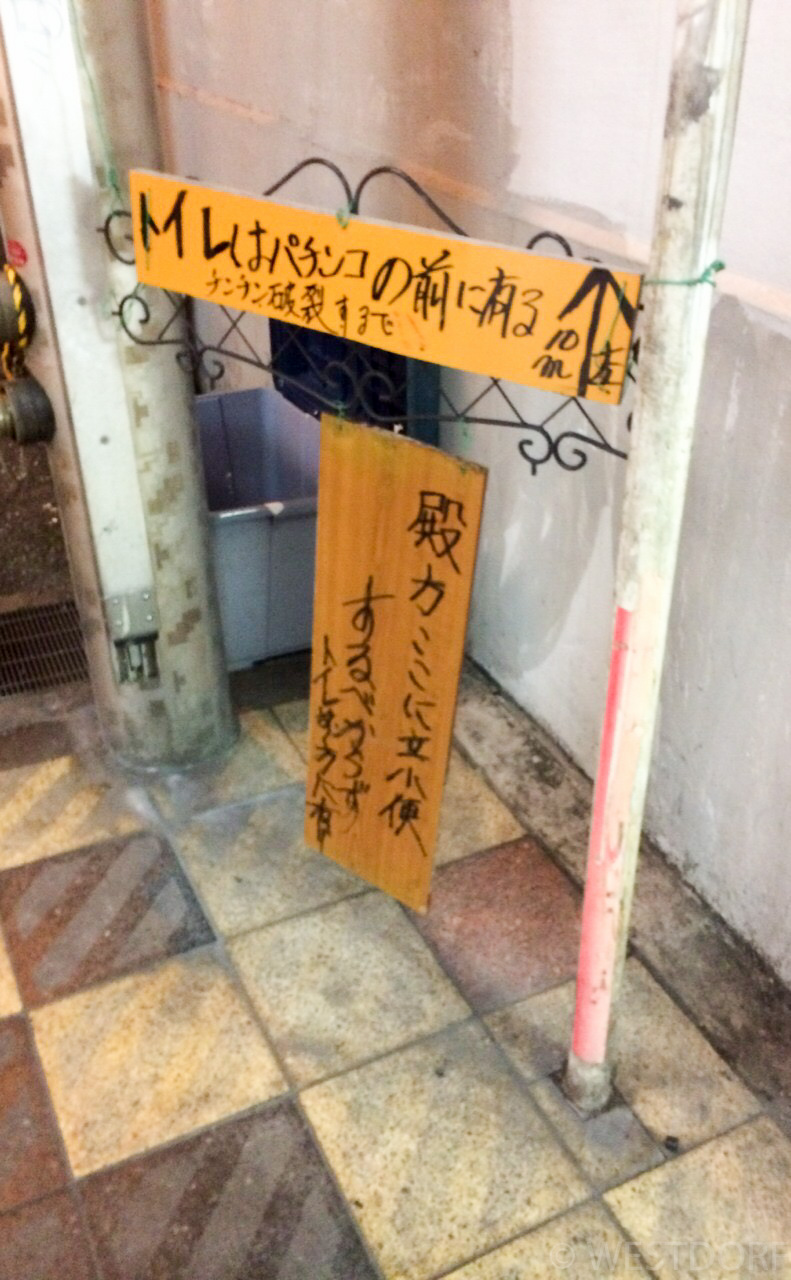 トイレはパチンコの前に有る
チンチン破裂するまで
10m
殿方ここに立小便
するべからず
© WESTDORF